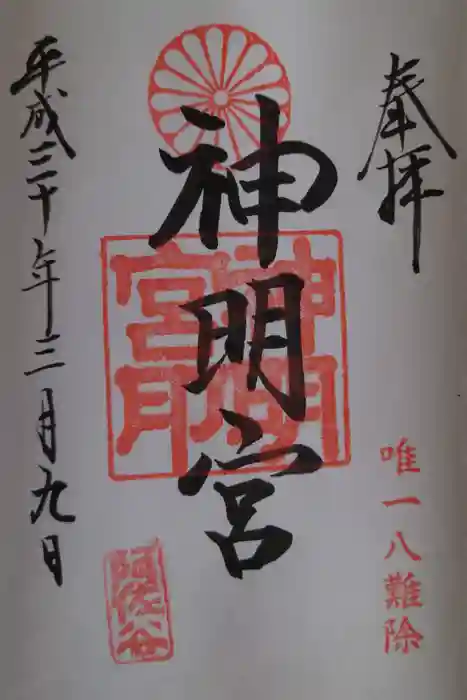 奉拝
唯一八難除
神明宮
神明宮印
阿佐谷
平成三十年三月九日